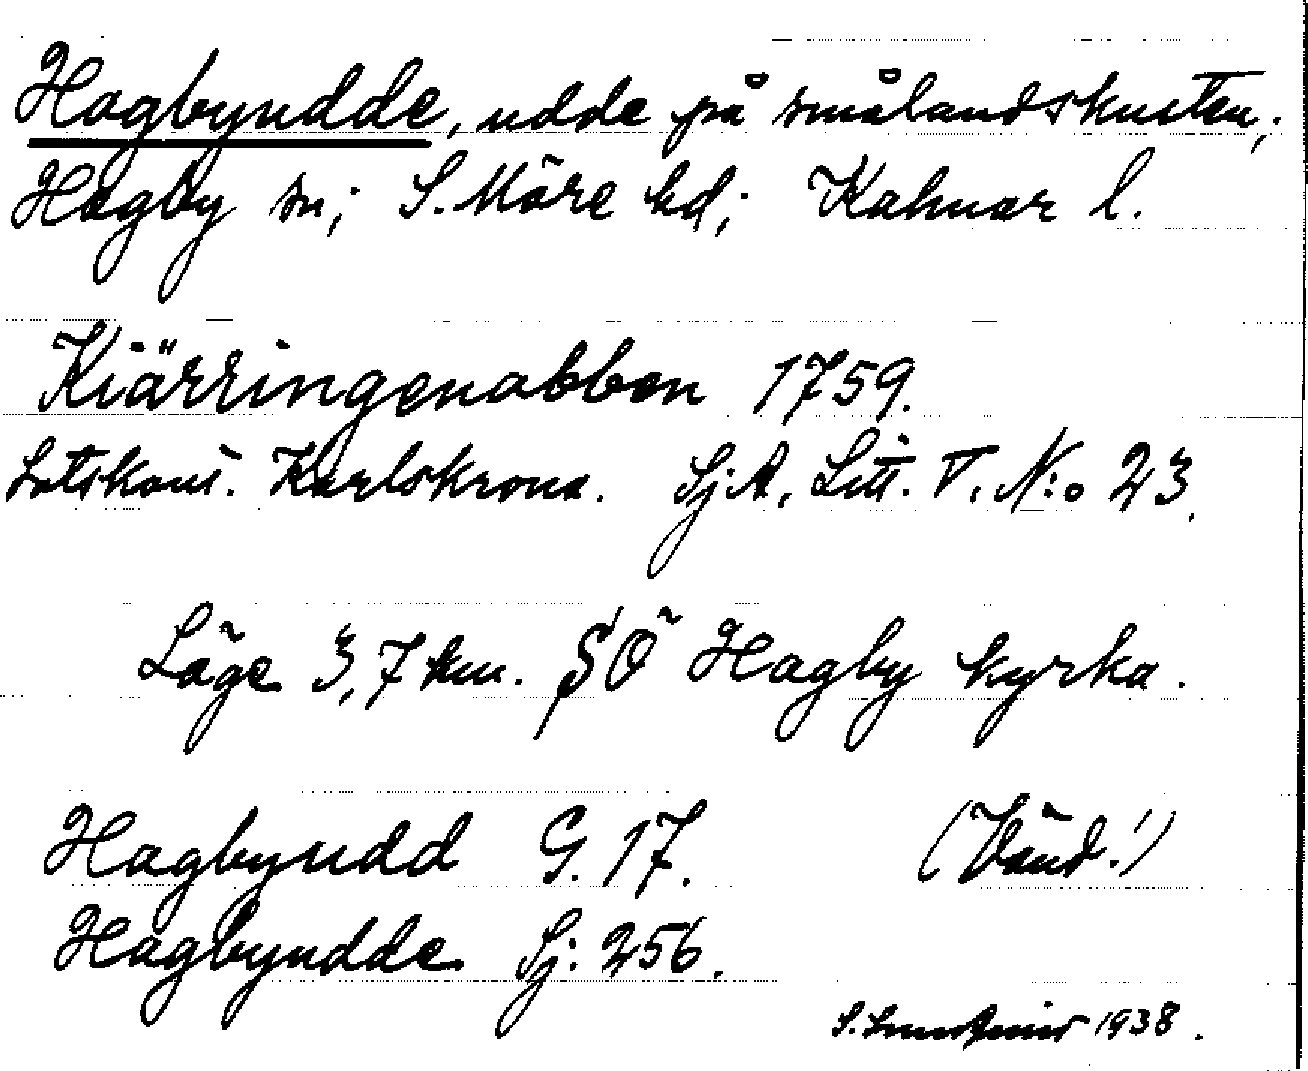 Hagbyudde, udde på smålandskusten,;
Hagby sn; S. Möre hd; Kalmar l.
Kiärringenabben 1759.
Lotskont. Karlskrona. SjA, Litt. V. N:o 23.
Läge 3,7 km. SÖ Hagby kyrka.
Hagbyudd G. 17. (Vänd!)
Hagbyudde Sj: 256.
S. 1938.